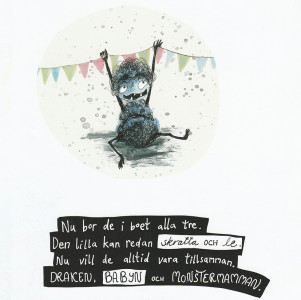 Nu bor de i boet alla tre.
Den lilla kan redan skratta OCH le.
Nu vill de alltid vara tillsamman,
DRAKEN, BABYN OCH MONSTERMAMMAN.